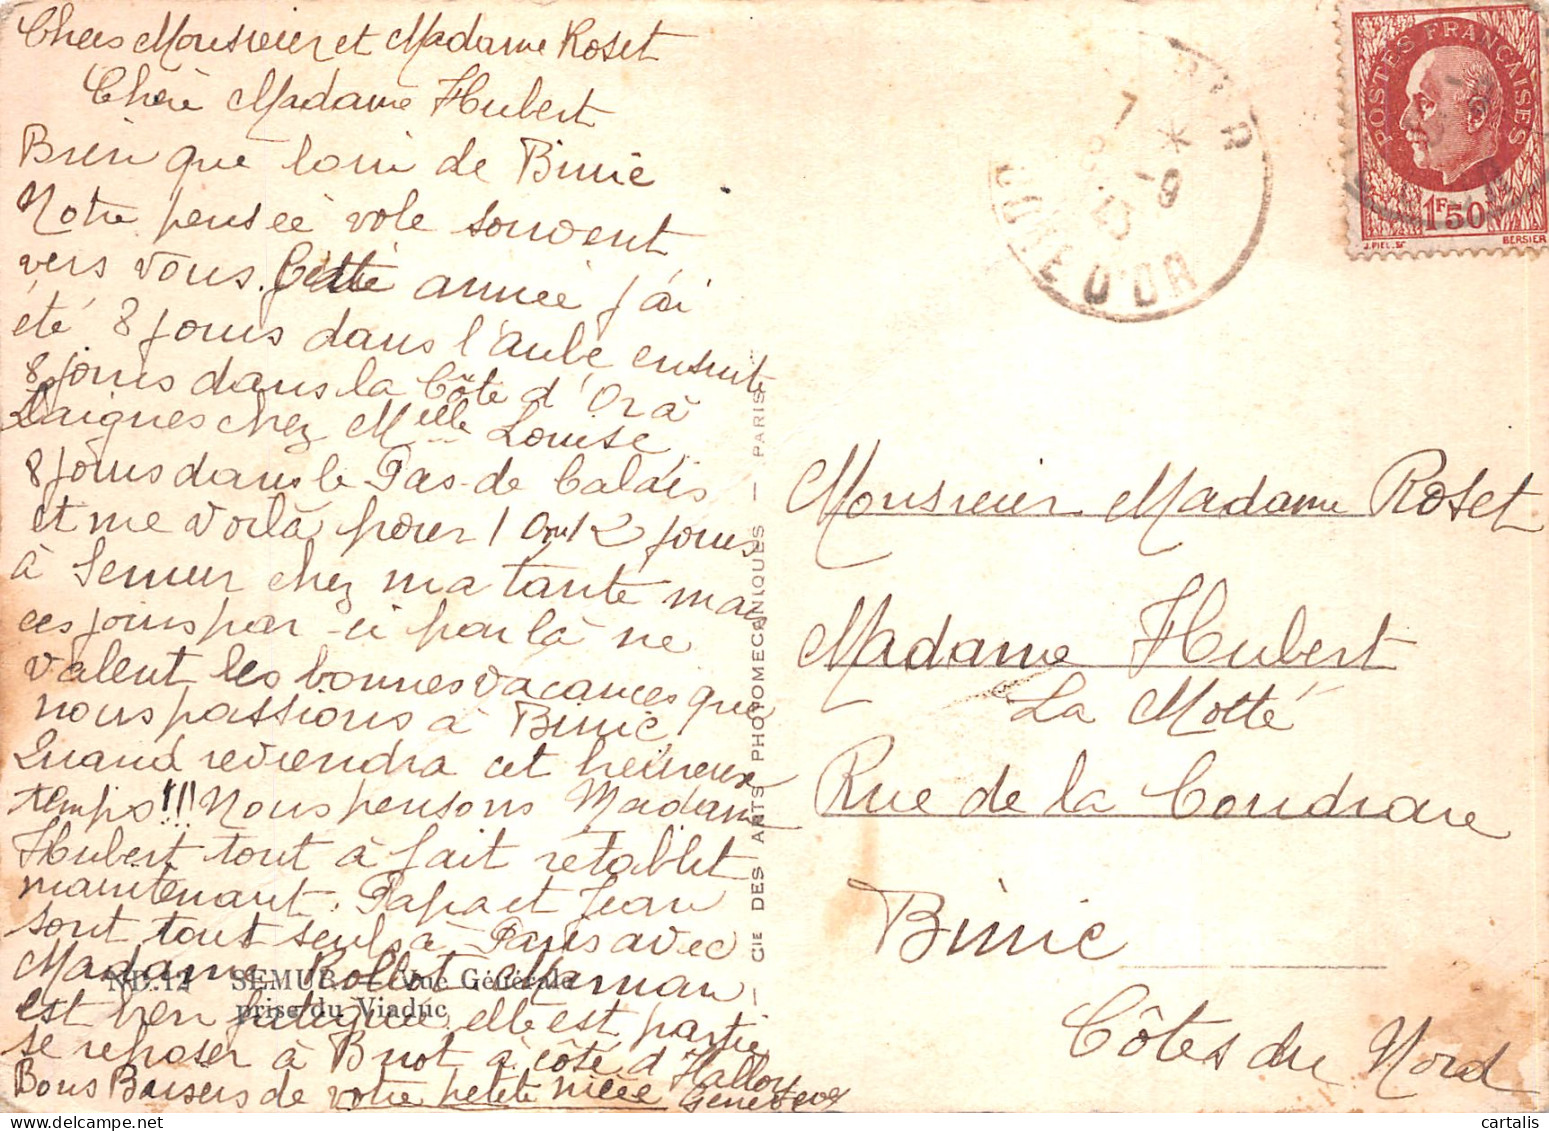 Chers Monsieur et Madame Roset
Chère Madame Hubert
Bien que loin de Binic
Notre pensée vole souvent
vers vous. Cette année j'ai
été 8 jours dans l'Aube ensuite
8 jours dans la Côte d'Or à
Laignes chez Melle Louise,
8 jours dans le Pas-de Calais
et me voilà pour 10 ou 12 jours
à Semur chez ma tante mai
ces jours par-ci par là ne
valent les bonnes vacances que
nous passions à Binic
Quand reviendra cet heureux
temps!!! Nous pensons Madame
Hubert tout à fait retablet
maintenant. Papa et Jean
sont tout seuls à Paris avec
Madame Rollet. Maman
est bien fatiguée, elle est partie
se reposer à Buot à côté d'Halloy
Bons Baisers de votre petite nièce Geneviève
ND.12 SEMUR. — Vue Générale
prise du Viaduc
CIE DES ARTS PHOTOMECANIQUES — PARIS
7 *
-9
43
COTE D'OR
POSTES FRANÇAISES
1F50
J.PIEL.SC BERSIER
Monsieur Madame Roset
Madame Hubert
La Motte
Rue de la Coudraie
Binic
Côtes du Nord
cartalis